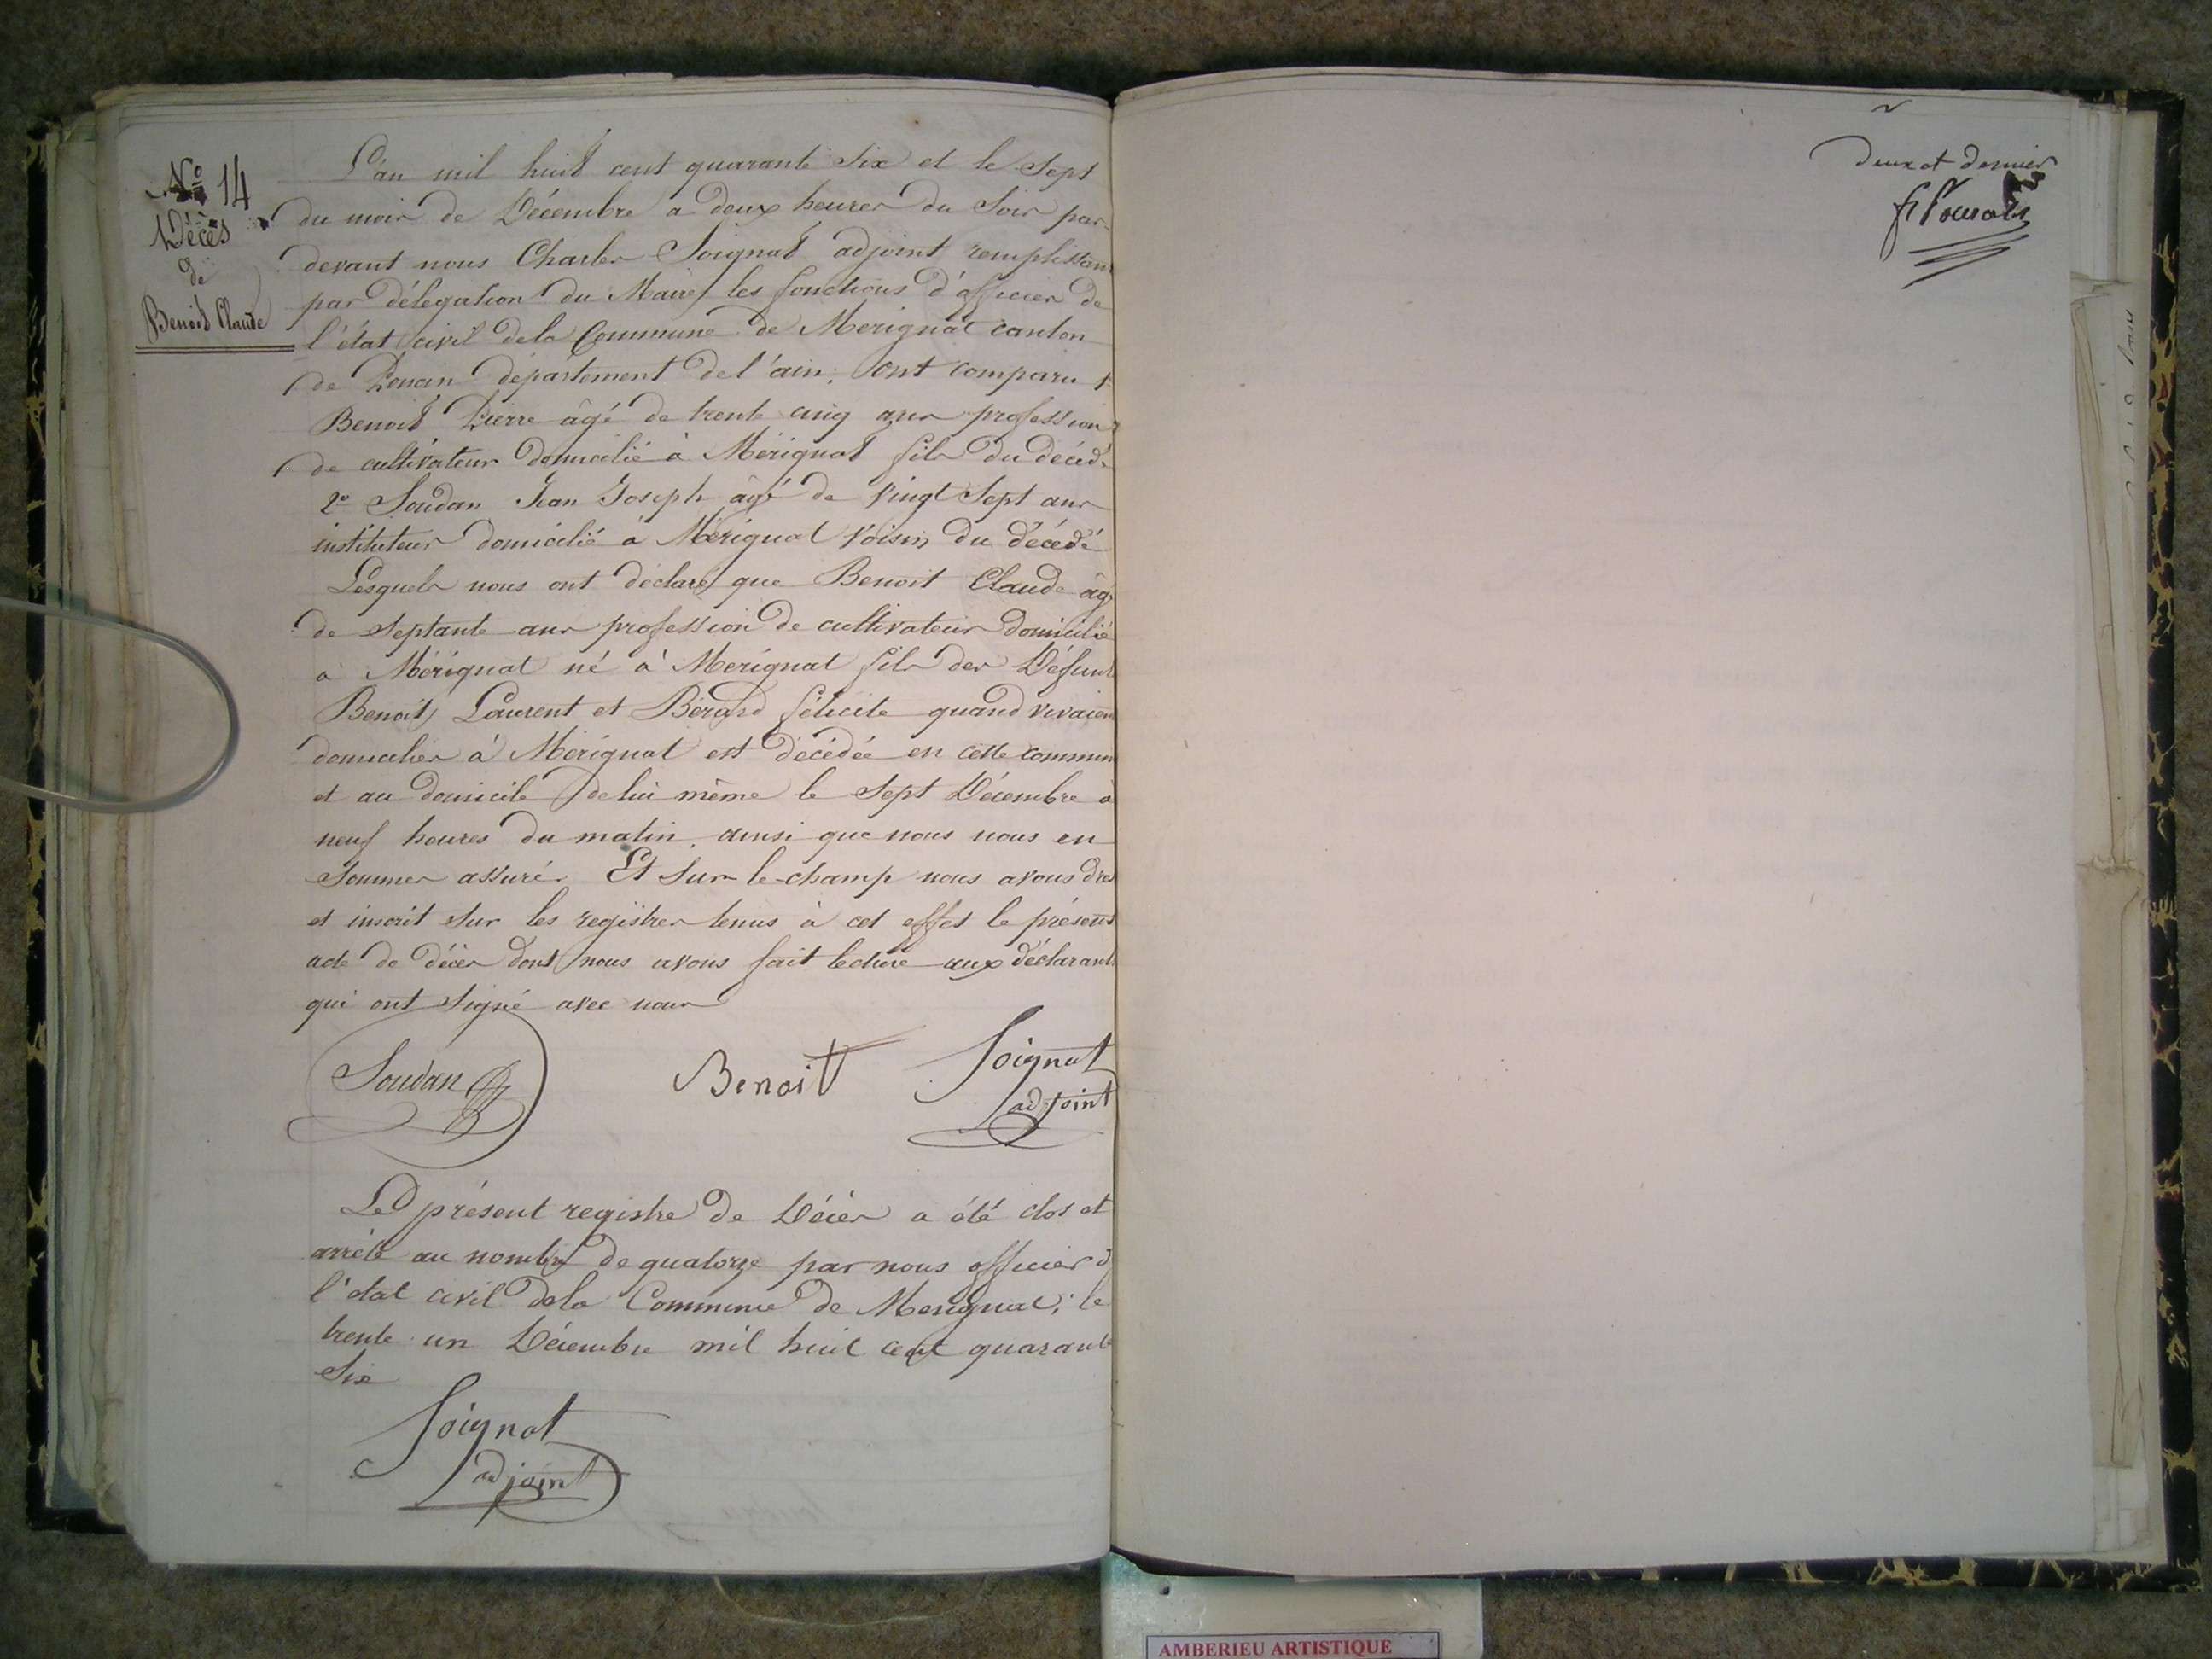 No 14
Décès
de
Benoit Claude
L'an mil huit cent quarante Six et le Sept
du mois de Décembre a deux heures du Soir par
devant nous Charles Soignat adjoint remplissant
par délégation du Maire les fonctions d'officier de
l'état civil de la Commune de Merignat canton
de département de l'ain, Ont comparu 1º
Benoit Pierre âgé de trente cinq ans profession
de cultivateur domicilié à Mérignat fils du décédé
2º Soudan Jean Joseph âgé de vingt Sept ans
instituteur domicilié à Mérignat voisin du décédé
Lesquels nous ont déclaré que Benoit Claude âgé
de Septante ans profession de cultivateur domicilié
à Mérignat né à Merignat fils des Défunts
Benoit Laurent et Bérard félicité quand vivaient
domicilies à Mérignat est décédée en cette commune
et au domicile de lui même le Sept Décembre à
neuf heures du matin, ainsi que nous nous en
Sommes assuré. Et Sur le champ nous avons dres
et inscrit Sur les registres tenus à cet effet le présent
acte de décès dont nous avons fait lecture aux déclarants
qui ont Signé avec nous
Soudan Benoit Soignat
adjoint
Le présent registre de Décès a été clos et
arrêté au nombre de quatorze par nous officier d
l'état civil de la Commune de Merignat, le
trente un Décembre mil huit cent quarante
Six
Soignat
adjoint
deux et dernier
AMBERIEU ARTISTIQUE